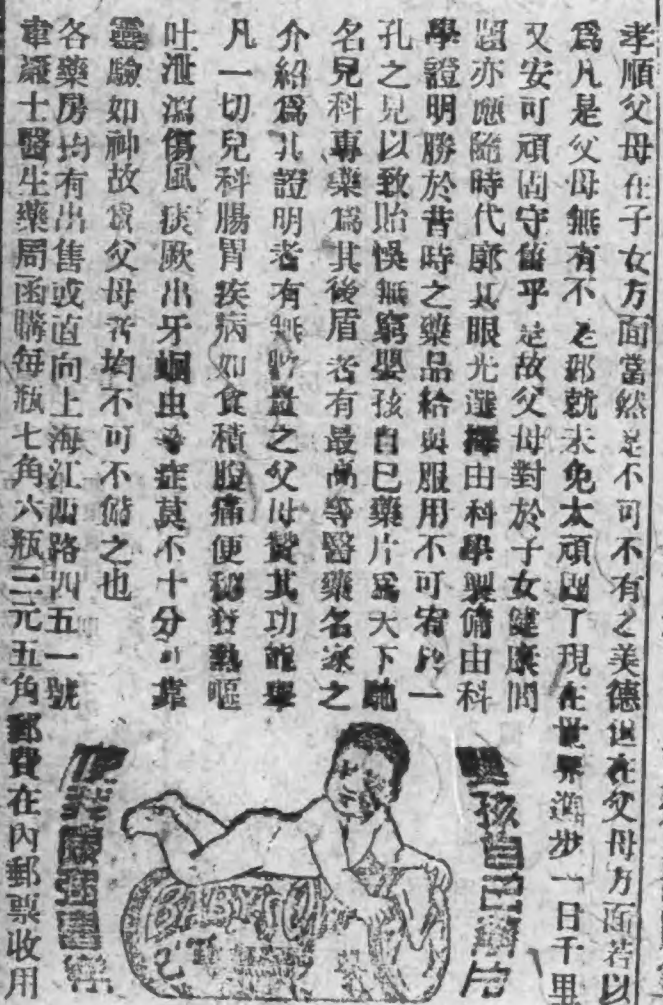 孝順父母在子女方面當然是不可不有之美德但在父母方面若以
爲凡是父母無有不是那就未免太頑固了現在世界進步一日千里
又安可頑固守舊乎是故父母對於子女健康問
題亦應隨時代廓其眼光選擇由科學製備由科
學證明勝於昔時之藥品給與服用不可宥於一
孔之見以致貽悞無窮嬰孩自己藥片爲天下馳
名兒科專藥爲其後盾者有最高等醫藥名家之
介紹爲其證明者有無數量之父母贊其功能舉
凡一切兒科腸胃疾病如食積腹痛便秘發熱嘔
吐泄瀉傷風痰厥出牙蛔虫等症莫不十分可靠
靈驗如神故爲父母者均不可不備之也
各藥房均有出售或直向上海江西路四五一號
韋廉士醫生藥局函購每瓶七角六瓶三元五角郵費在內郵票收用
嬰孩自己藥片
使孩康強喜樂
BABY'S OWN